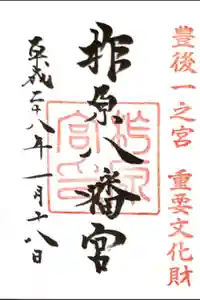 豊後一之宮 重要文化財
柞原八幡宮
平成二十八年一月十八日